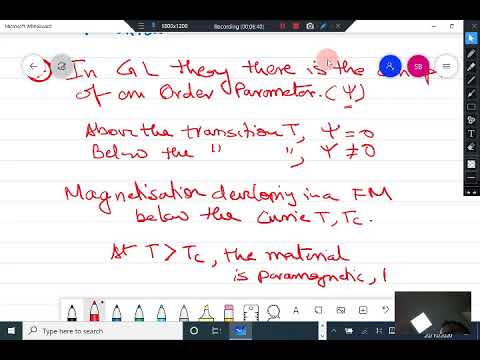 Microsoft Whiteboard
1800x1200
Recording [00:06:40]
SB
In GL theory there is the
of an Order Parameter. (Ψ)
Above the transition T, Ψ = 0
Below the " ", Ψ ≠ 0
Magnetisation developing in a FM
below the Curie T, Tc.
At T > Tc, the material
is paramagnetic, 
Type here to search
20/10/2020